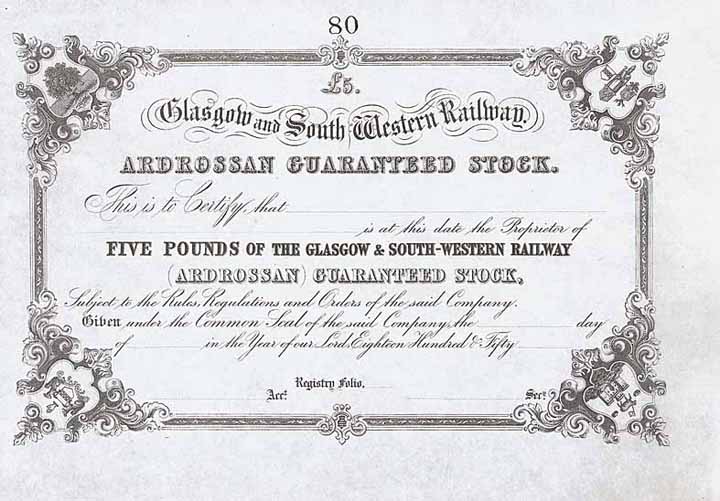 80
£5.
Glasgow and South Western Railway.
ARDROSSAN GUARANTEED STOCK.
This is to Certify, that
is at this date the Proprietor of
FIVE POUNDS OF THE GLASGOW & SOUTH-WESTERN RAILWAY
(ARDROSSAN) GUARANTEED STOCK,
Subject to the Rules, Regulations and Orders of the said Company.
Given under the Common Seal of the said Company, the day
of in the Year of our Lord, Eighteen Hundred & Fifty
Registry Folio.
Acct. Secy.